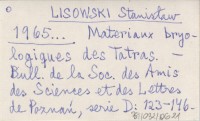 LISOWSKI Stanisław
1965... Materiaux bryo-
logiques des Tatras. —
Bull. de la Soc. des Amis
des Sciences et des Lettres
de Poznań, serie D: 123-146.